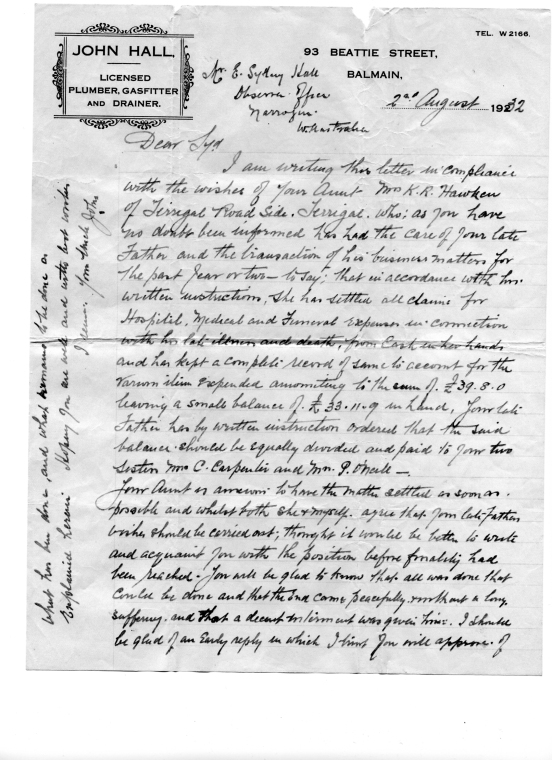 TEL. W 2166.
JOHN HALL,
LICENSED
PLUMBER, GASFITTER
AND DRAINER.
93 BEATTIE STREET,
BALMAIN,
2nd August 1932
Mr. E. Sydney Hall
Observer Office
Narrogin.
W. Australia
Dear Syd
I am writing this letter in compliance
with the wishes of Your Aunt Mrs K. R. Hawken
of Terrigal Road Side. Terrigal. who: as you have
no doubt been informed has had the care of Your late
Father and the transaction of his business matters for
the past Year or two — to say; that in accordance with his
written instructions, she has settled all claims for
Hospital, Medical and Funeral Expenses in connection
with his late illness and death, from Cash in her hands
and has kept a complete record of same to account for the
various items expended amounting to the sum of. £39.8.0
leaving a small balance of. £33.11.9 in hand, Your late
Father has by written instruction ordered that the said
balance should be equally divided and paid to Your two
Sisters Mrs C. Carpenter and Mrs. P. Neill —
Your Aunt is anxious to have the matter settled as soon as
possible and whilst both she & myself. agree that Your late Fathers
wishes should be carried out; thought it would be better to write
and acquaint You with the position before finality had
been reached. You will be glad to know that all was done that
could be done and that the end came peacefully without a long
suffering. and that a decent interment was given him. I should
be glad of an Early reply in which I trust You will approve. of
what has been done, and what remains to be done as
Explained herein. Hoping You are well and with best wishes
Your Uncle John